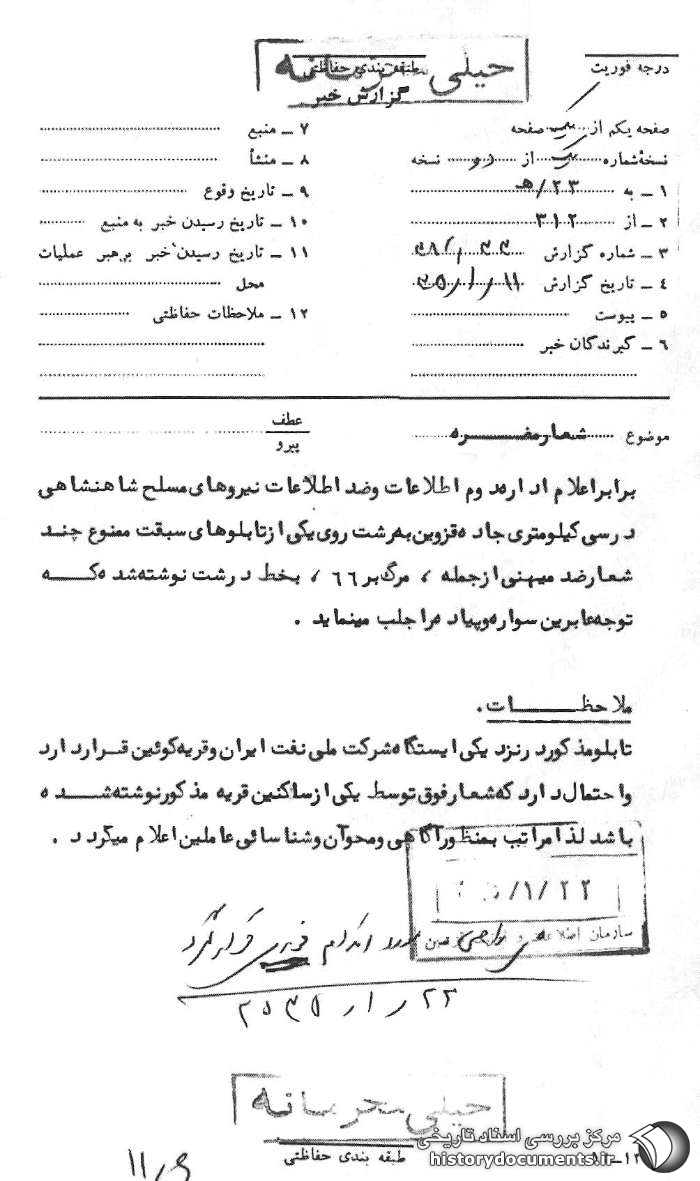 خیلی محرمانه
طبقه بندی حفاظتی
درجه فوریت
گزارش خبر
صفحه یکم از یک صفحه
نسخهٔ شماره یک از دو نسخه
۱ ـ به ۲۳/هـ
۲ ـ از ۳۱۲
۳ ـ شماره گزارش
۴ ـ تاریخ گزارش ۱۱ر۱ر۳۵
۵ ـ پیوست
۶ ـ گیرندگان خبر
۷ ـ منبع
۸ ـ منشأ
۹ ـ تاریخ وقوع
۱۰ ـ تاریخ رسیدن خبر به منبع
۱۱ ـ تاریخ رسیدن خبر برهبر عملیات
محل
۱۲ ـ ملاحظات حفاظتی
موضوع شعار مضره
عطف
پیرو
برابر اعلام اداره دوم اطلاعات و ضد اطلاعات نیروهای مسلح شاهنشاهی
در سی کیلومتری جاده قزوین به رشت روی یکی از تابلوهای سبقت ممنوع چند
شعار ضد میهنی از جمله ، مرگ بر ۶۶ ، بخط درشت نوشته شده که
توجه عابرین سواره و پیاده را جلب مینماید .
ملاحظــــات.
تابلو مذکور در نزد یکی ایستگاه شرکت ملی نفت ایران و قریه کوئین قرار دارد
و احتمال دارد که شعار فوق توسط یکی از ساکنین قریه مذکور نوشته شده
باشد لذا مراتب بمنظور آگاهی و محو آن و شناسائی عاملین اعلام میگردد .
۱/۲۲
سازمان اطلاعات و
اقدام فوری قرار گیرد
۲۲ر۱ر۲۵۳۵
خیلی محرمانه
طبقه بندی حفاظتی
مرکز بررسی اسناد تاریخی
historydocuments.ir